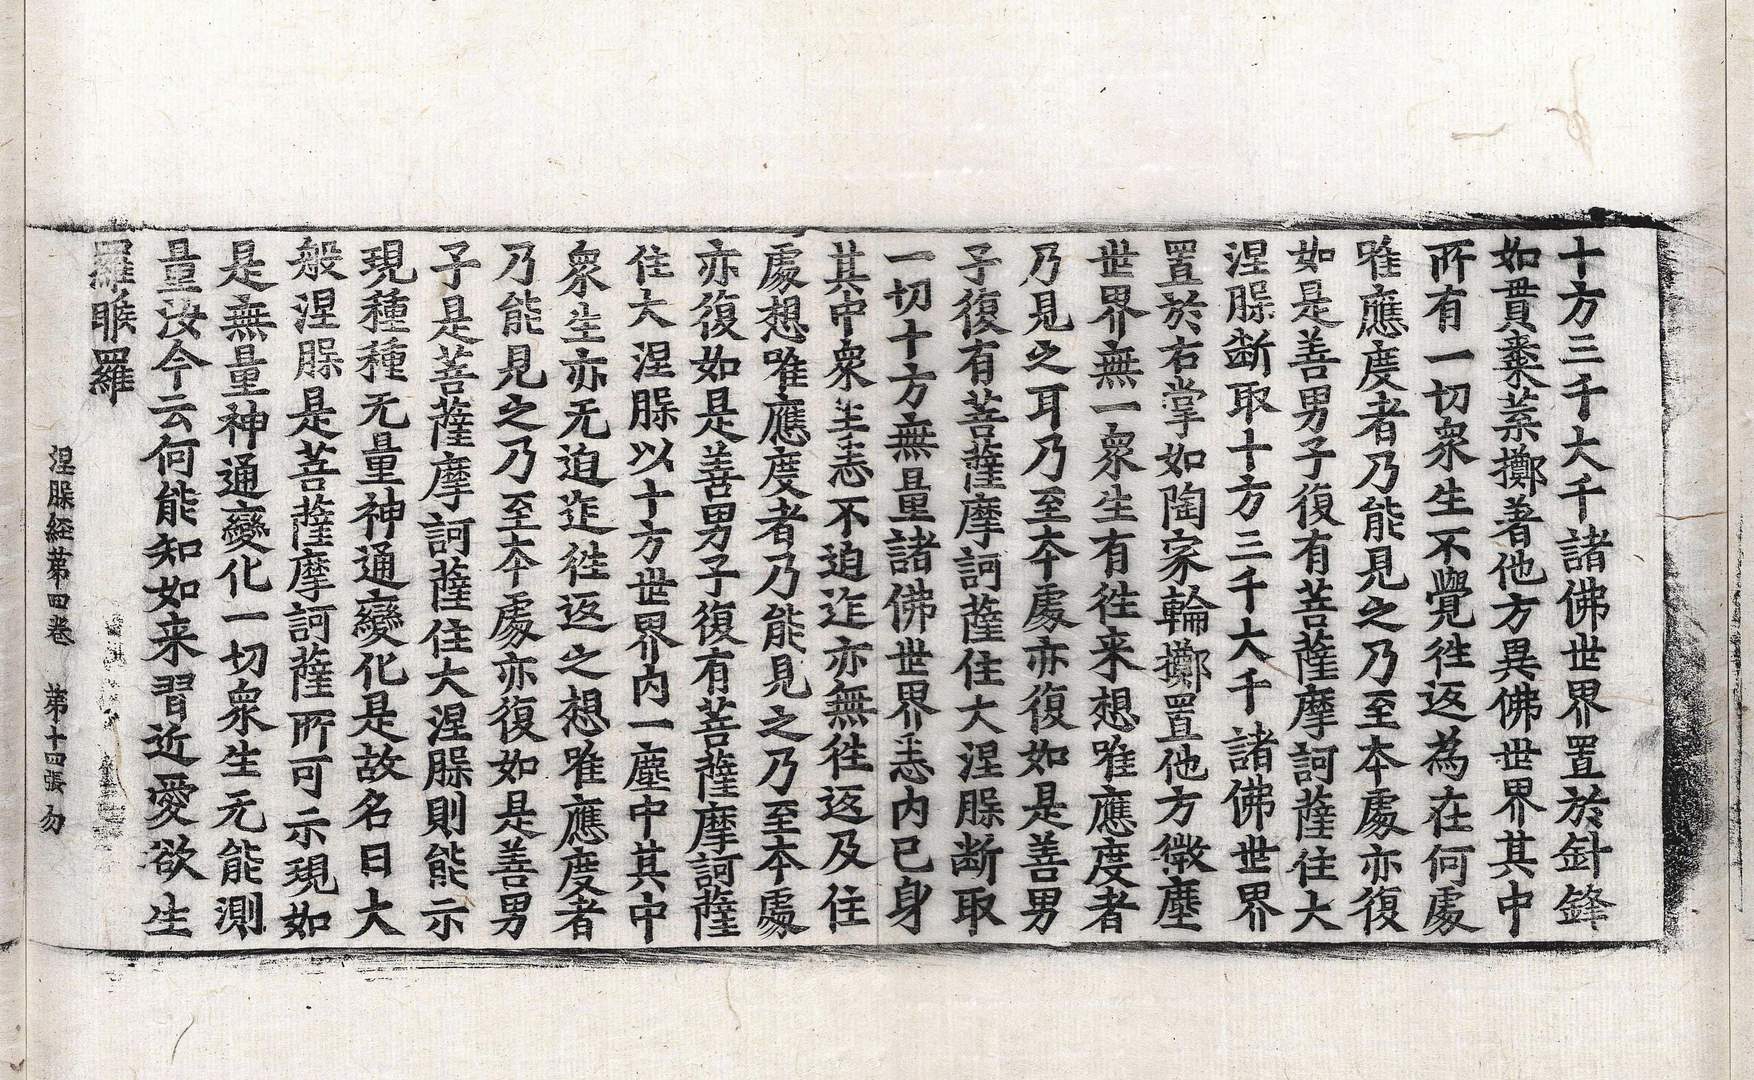 十方三千大千諸佛世界置於針鋒
如貫棗葉擲著他方異佛世界其中
所有一切衆生不覺徃返為在何處
唯應度者乃能見之乃至本處亦復
如是善男子復有菩薩摩訶薩住大
涅槃断取十方三千大千諸佛世界
置於右掌如陶家輪擲置他方微塵
世界無一衆生有徃来想唯應度者
乃見之耳乃至本處亦復如是善男
子復有菩薩摩訶薩住大涅槃断取
一切十方無量諸佛世界悉内己身
其中衆生悉不迫迮亦無徃返及住
處想唯應度者乃能見之乃至本處
亦復如是善男子復有菩薩摩訶薩
住大涅槃以十方世界内一塵中其中
衆生亦无迫迮徃返之想唯應度者
乃能見之乃至本處亦復如是善男
子是菩薩摩訶薩住大涅槃則能示
現種種无量神通變化是故名曰大
般涅槃是菩薩摩訶薩所可示現如
是無量神通變化一切衆生无能測
量汝今云何能知如来習近愛欲生
羅睺羅
涅槃経第四卷 第十四張 勿